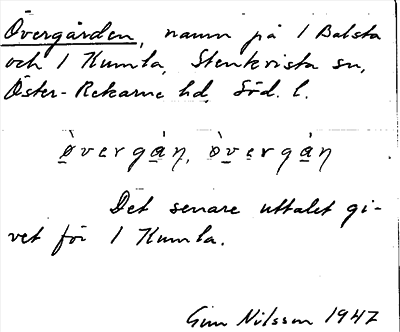 Övergården, namn på 1 Balsta
och 1 Kumla, Stenkvista sn,
Öster-Rekarne hd, Söd. l.
ø̀vergàn̥, òvergàn̥
Det senare uttalet gi-
vet för 1 Kumla.
Gun Nilsson 1947